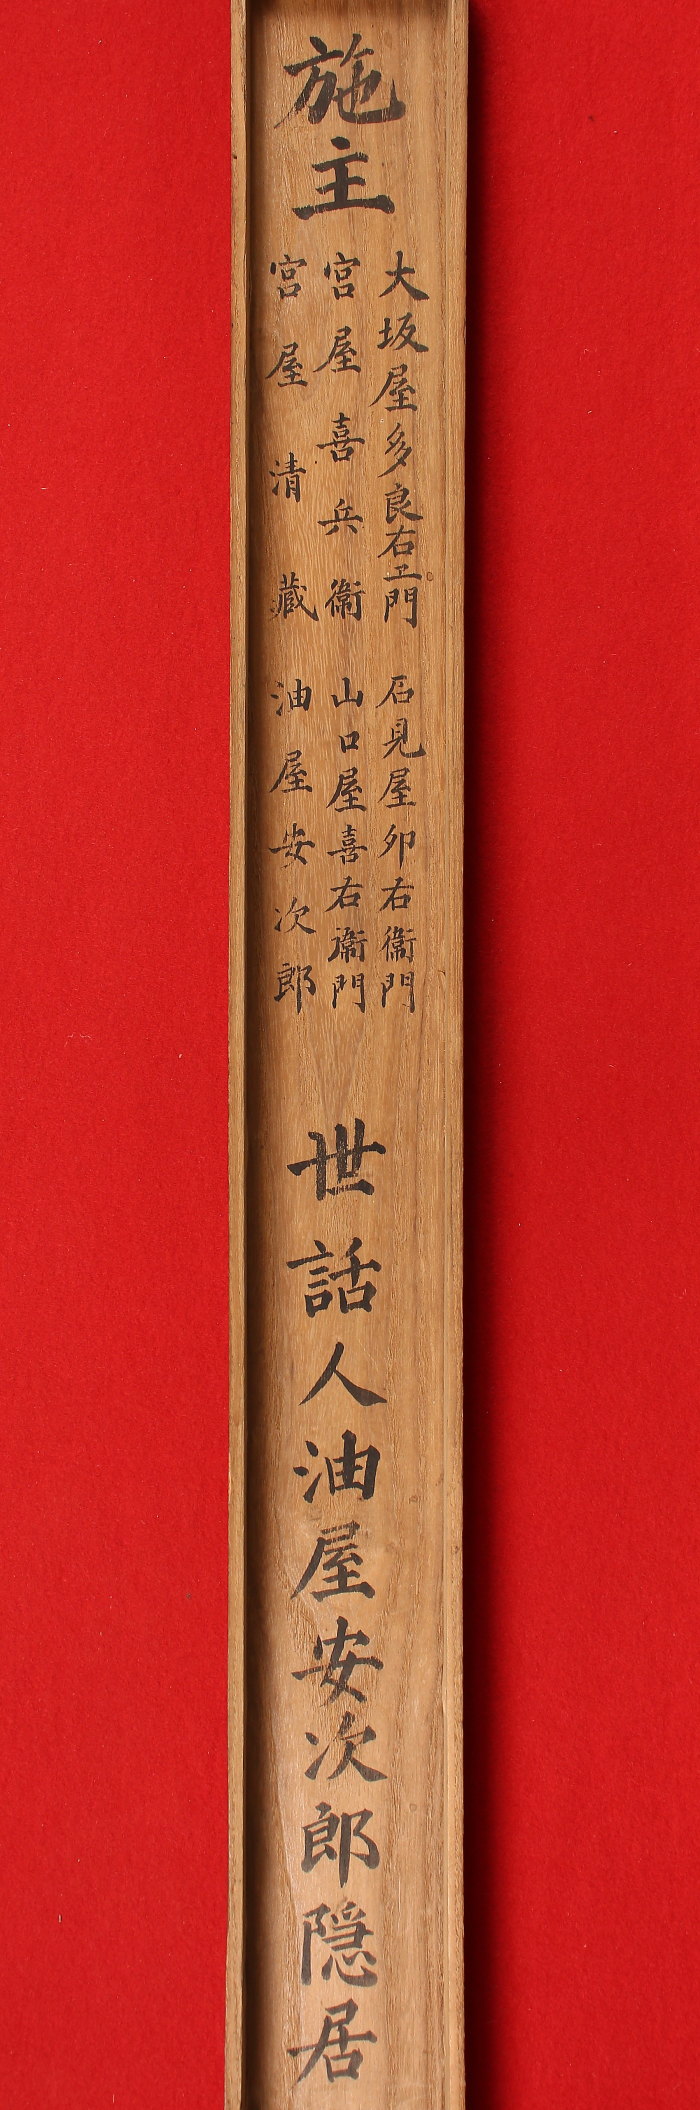 施主
大坂屋多良右エ門
宮屋喜兵衞
宮屋清藏
石見屋卯右衞門
山口屋喜右衞門
油屋安次郎
世話人油屋安次郎隠居